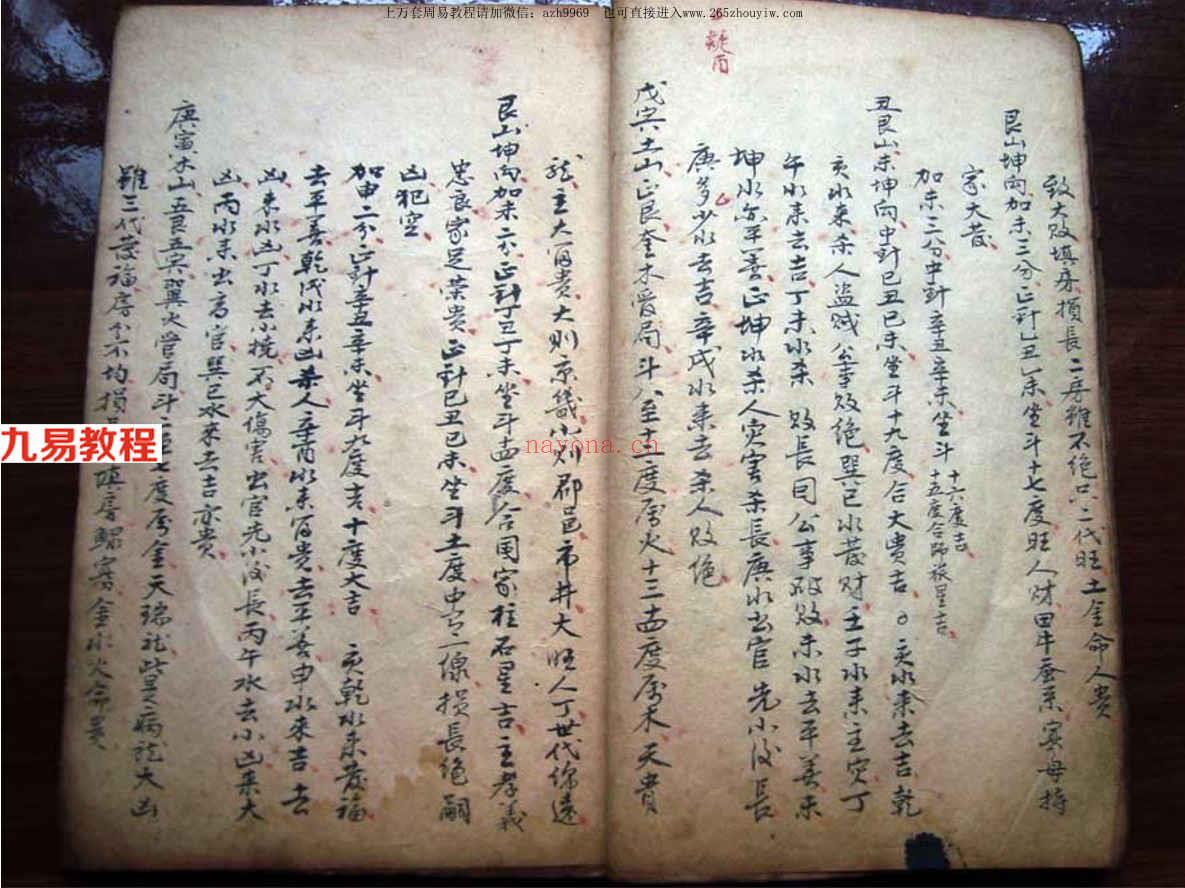 上万套周易教程请加微信：azh9969 也可直接进入www.265zhouyiw.com
致大败填房損長二房雖不绝只二代旺土金命人貴
艮山坤向加未三分正針乙丑乙未坐斗十七度旺人財田牛蚕
家大發
加未三分中針辛丑辛未坐斗
十六度吉
十五度合
丑艮山未坤向中針巳丑巳未坐斗十九度合大貴吉○亥水来去吉乾
亥水来杀人盗贼公事败绝巽巳水發财壬子水来主灾丁
午水来去吉丁未水杀败長同公事破败未水去平善未
坤水亦平善正坤水杀人灾害杀長庚水出官先小後長
庚多少水去吉辛戌水来去杀人败绝
乙
戊寅土山正艮奎木管局斗八至十二度属火十三四度属木天貴
龙主大富貴大则京畿小则郡邑市井大旺人丁世代绵遠
艮山坤向加未二分正針丁丑丁未坐斗十四度合国家柱石星吉主孝義
忠良家足荣貴正針巳丑巳未坐斗十度中一線損長绝嗣
凶犯空
加申二分正針辛丑辛未坐斗九度吉十度大吉 亥乾水来發福
去平善乾戌水来凶杀人辛酉水来富貴去平善申水来吉去
凶未水凶丁水去小撓不大傷害出官先小後長丙午水去小凶来大
凶丙水未出高官巽巳水来去吉亦貴
庚寅木山艮五寅翼火管局斗至七度属金天瑞龙此是病龙大凶
雖三代發福房分不均損填房鰥寡金水火命貴
九易教程
nayona.cn